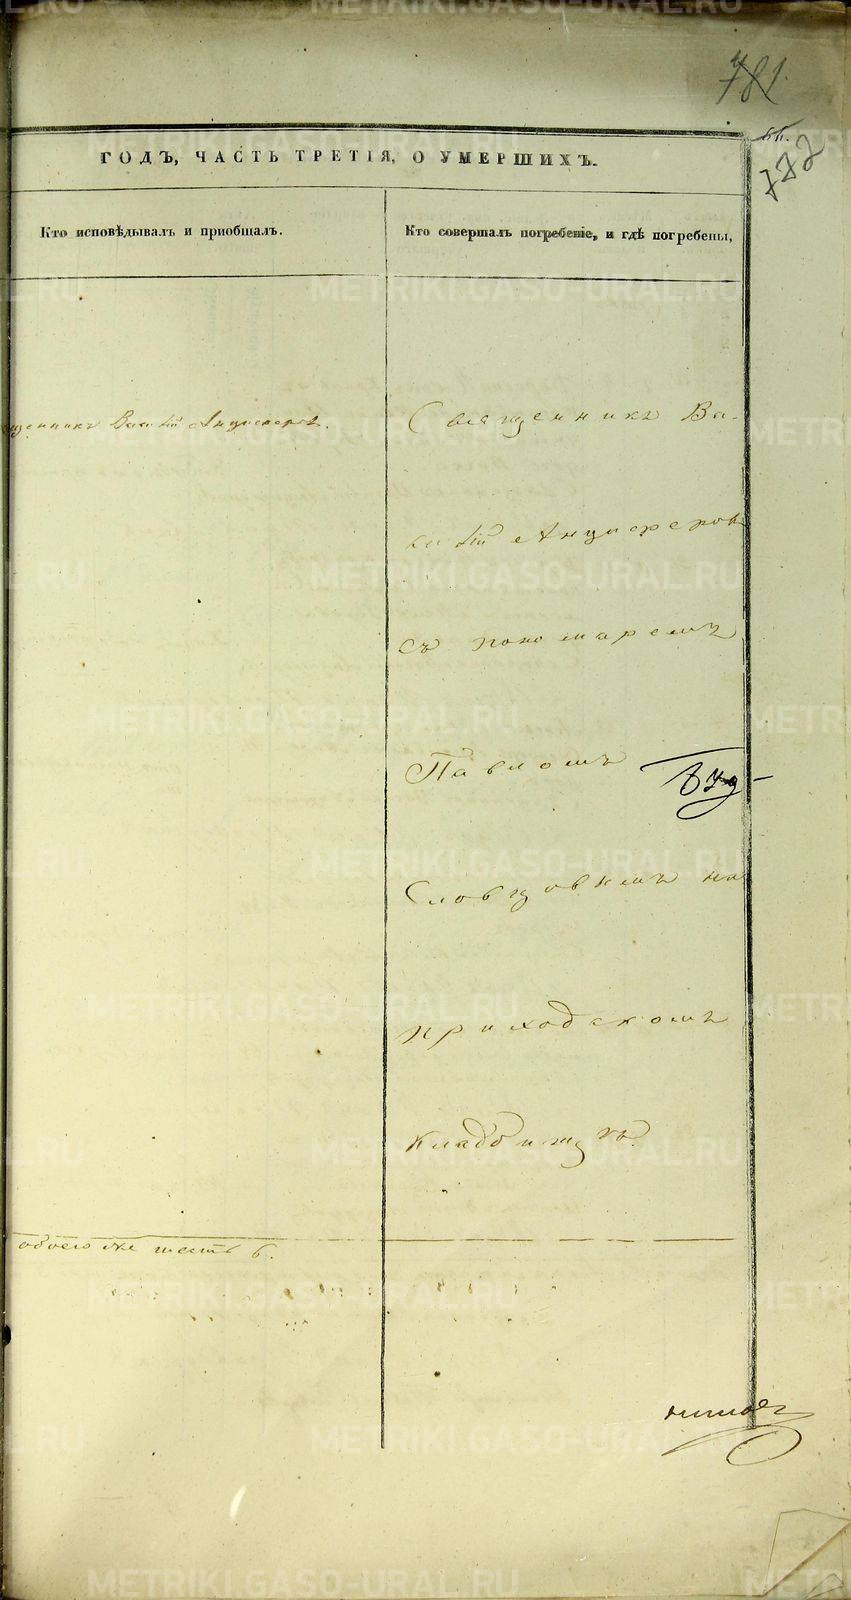 781.
66.
772
ГОДЪ, ЧАСТЬ ТРЕТІЯ, О УМЕРШИХЪ.
Кто исповѣдывалъ и пріобщалъ.
Кто совершалъ погребеніе, и гдѣ погребены,
щенникъ Васілій Анциферовъ.
Священникъ Ва-
силій Анциферовъ
съ пономаремъ
Павломъ
Словцовымъ на
приходскомъ
кладбищѣ.
обоего же шесть 6.
METRIKI.GASO-URAL.RU